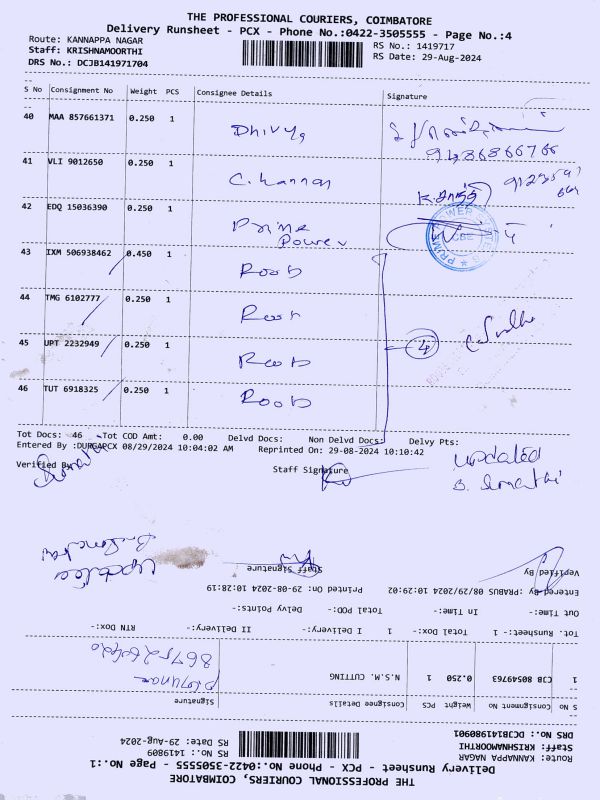 THE PROFESSIONAL COURIERS, COIMBATORE
Delivery Runsheet - PCX - Phone No.:0422-3505555 - Page No.:4
Route: KANNAPPA NAGAR
RS No.: 1419717
Staff: KRISHNAMOORTHI
RS Date: 29-Aug-2024
DRS No.: DCJB141971704
S No Consignment No Weight PCS Consignee Details Signature
40 MAA 857661371 0.250 1
Dhivya
41 VLI 9012650 0.250 1
C. Kannan
42 EDQ 15036390 0.250 1
Prime
Power
43 IXM 506938462 0.450 1
Roob
44 TMG 6102777 0.250 1
Roob
45 UPT 2232949 0.250 1
Roob
46 TUT 6918325 0.250 1
Roob
4
Tot Docs: 46 Tot COD Amt: 0.00 Delvd Docs: Non Delvd Docs: Delvy Pts:
Entered By :DURGAPCX 08/29/2024 10:04:02 AM Reprinted On: 29-08-2024 10:10:42
Verified By
Staff Signature
updated
S. Sumathi
THE PROFESSIONAL COURIERS, COIMBATORE
Delivery Runsheet - PCX - Phone No.:0422-3505555 - Page No.:1
Route: KANNAPPA NAGAR
RS No.: 1419809
Staff: KRISHNAMOORTHI
RS Date: 29-Aug-2024
DRS No.: DCJB141980901
S No Consignment No Weight PCS Consignee Details Signature
1 CJB 80549763 0.250 1 N.S.M. CUTTING
Tot. Runsheet:- 1 Total -Dox:- 1 I Delivery:- II Delivery:- RTN Dox:-
Out Time:- In Time:- Total POD:- Delay Points:-
Entered By :PRABUS 08/29/2024 10:29:02 Printed On: 29-08-2024 10:28:19
Verified By
Staff Signature
Updated